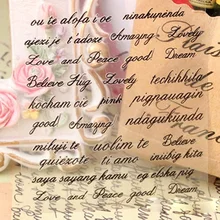 ou te alofa i oe ninakupenda
ajezi je t adore Amazyng Lovely
Love and Peace good! Dream
Believe Hug Lovely techihhila
kocham cie pink pignauagin
good! Amazing ndagukunda
miluji te volim te Believe
quiezote ti amo inuibig kita
saya sayang kamu eg elska pig
Love and Peace good! Dream